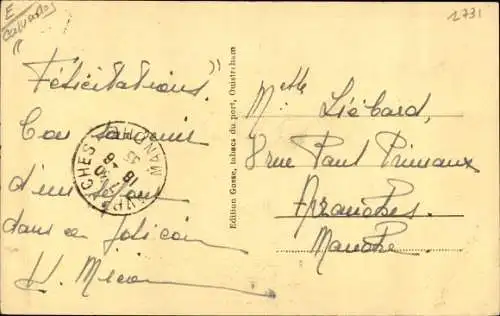 E
Calvados
1231
"Félicitations"
Bon souvenir
d'un séjour
dans ce joli coin
Edition Gosse, tabacs du port, Ouistreham
AVRANCHES MANCHE
18 -8 35
Melle Liébard,
8 rue Paul Primaux
Avranches.
Manche.